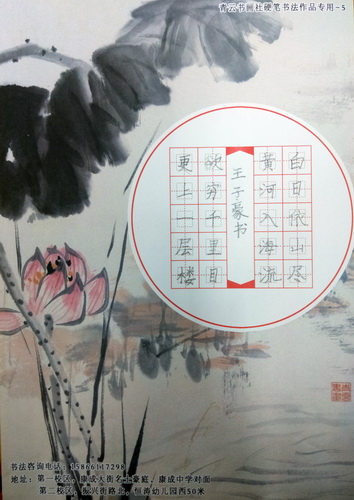 青云书画社硬笔书法作品专用-5
白日依山尽
黄河入海流
王子豪书
欲穷千里目
更上一层楼
书法咨询电话：15866117298
地址：第一校区，康成大街名士豪庭，康成中学对面
第二校区，振兴街路北，恒涛幼儿园西50米